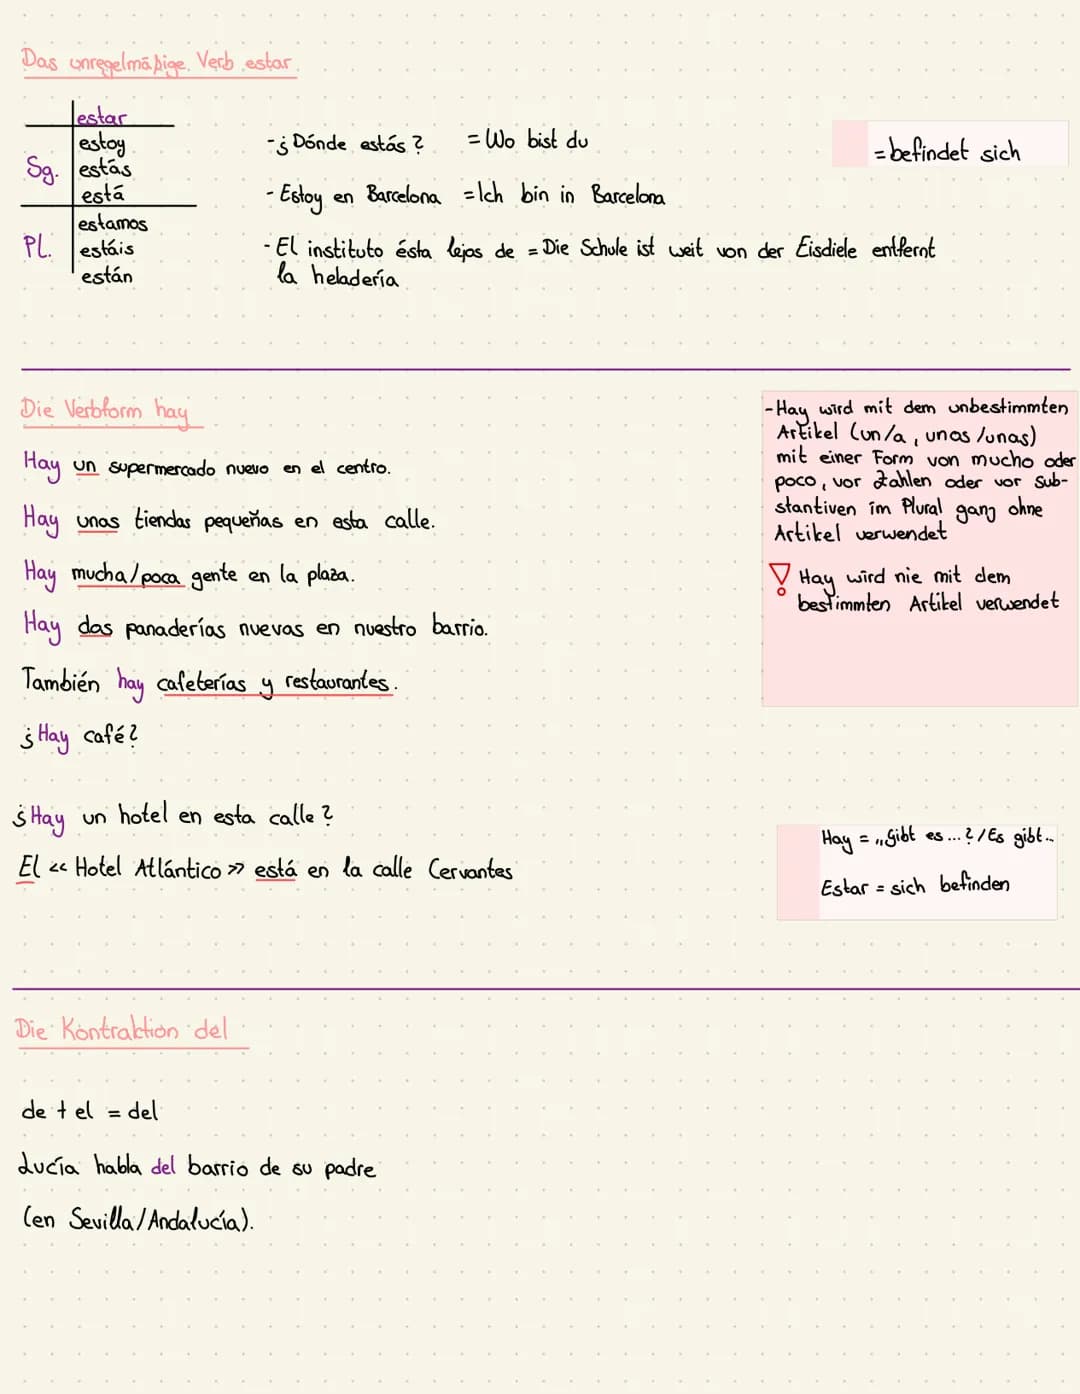 Das unregelmäßige Verb estar
estar
Sg. estoy
estás
está
PL. estamos
estáis
están
-¿Dónde estás? = Wo bist du
- Estoy en Barcelona = Ich bin in Barcelona
- El instituto ésta lejos de = Die Schule ist weit von der Eisdiele entfernt
la heladería
= befindet sich
Die Verbform hay
Hay un supermercado nuevo en el centro.
Hay unas tiendas pequeñas en esta calle.
Hay mucha/poca gente en la plaza.
Hay dos panaderías nuevas en nuestro barrio.
También hay cafeterías y restaurantes.
¿Hay café?
¿Hay un hotel en esta calle?
El << Hotel Atlántico >> está en la calle Cervantes
- Hay wird mit dem unbestimmten
Artikel (un/a, unos/unas)
mit einer Form von mucho oder
poco, vor Zahlen oder vor Sub-
stantiven im Plural ganz ohne
Artikel verwendet
Hay wird nie mit dem
bestimmten Artikel verwendet
Hay = „Gibt es...?/Es gibt..
Estar = sich befinden
Die Kontraktion del
de + el = del
Lucía habla del barrio de su padre
(en Sevilla/Andalucía).